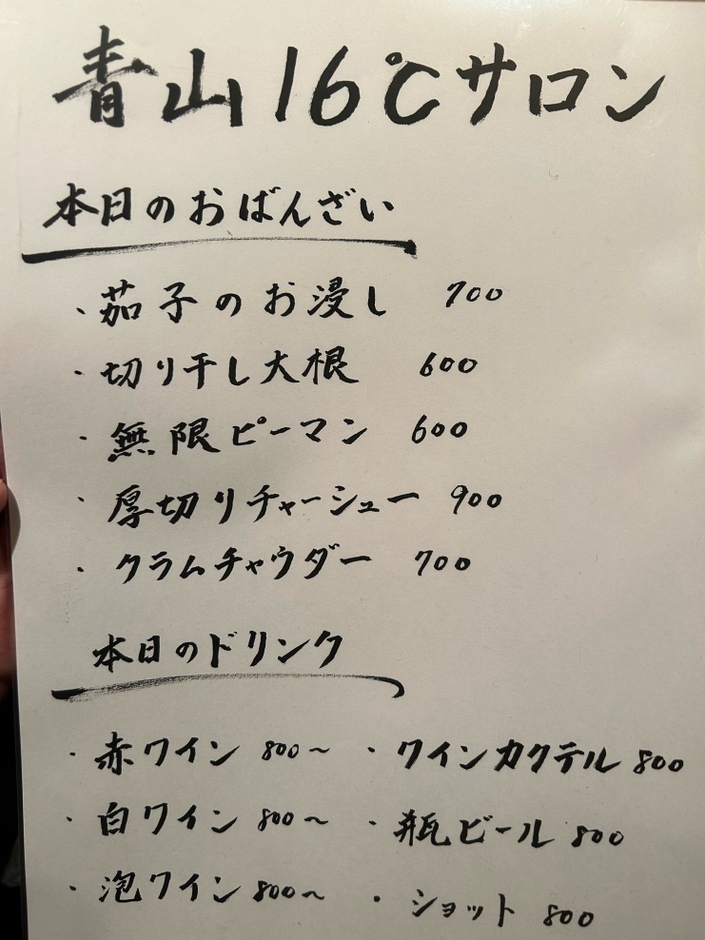 青山16℃サロン
本日のおばんざい
・茄子のお浸し 700
・切り干し大根 600
・無限ピーマン 600
・厚切りチャーシュー 900
・クラムチャウダー 700
本日のドリンク
・赤ワイン 800〜 ・ワインカクテル 800
・白ワイン 800〜 ・瓶ビール 800
・泡ワイン 800〜 ・ショット 800